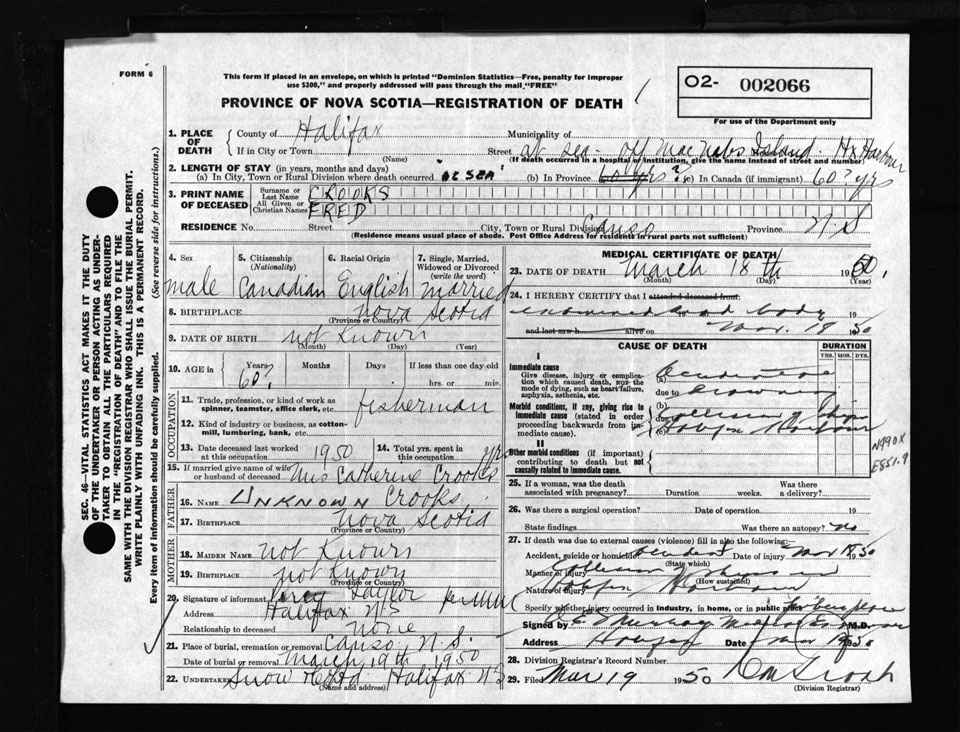 FORM 6
This form if placed in an envelope, on which is printed "Dominion Statistics—Free, penalty for improper
use $300," and properly addressed will pass through the mail "FREE"
PROVINCE OF NOVA SCOTIA—REGISTRATION OF DEATH
02- 002066
For use of the Department only
SEC. 46—VITAL STATISTICS ACT MAKES IT THE DUTY
OF THE UNDERTAKER OR PERSON ACTING AS UNDER-
TAKER TO OBTAIN ALL THE PARTICULARS REQUIRED
IN THE "REGISTRATION OF DEATH" AND TO FILE THE
SAME WITH THE DIVISION REGISTRAR WHO SHALL ISSUE THE BURIAL PERMIT.
WRITE PLAINLY WITH UNFADING INK. THIS IS A PERMANENT RECORD.
Every item of information should be carefully supplied. (See reverse side for instructions.)
1. PLACE OF DEATH { County of Halifax Municipality of
If in City or Town (Name) Street at sea - off MacNabs Island. Hx Harbour
(If death occurred in a hospital or institution, give the name instead of street and number)
2. LENGTH OF STAY (in years, months and days)
(a) In City, Town or Rural Division where death occurred at sea (b) In Province 60 yrs? (c) In Canada (if immigrant) 60? yrs
3. PRINT NAME OF DECEASED { Surname or Last Name CROOKS
All Given or Christian Names FRED
RESIDENCE No. Street City, Town or Rural Division Canso Province N.S
(Residence means usual place of abode. Post Office Address for residents in rural parts not sufficient)
4. Sex 5. Citizenship (Nationality) 6. Racial Origin 7. Single, Married, Widowed or Divorced (write the word)
male Canadian English Married
8. BIRTHPLACE Nova Scotia
(Province or Country)
9. DATE OF BIRTH not known
(Month) (Day) (Year)
10. AGE in { Years Months Days If less than one day old
60? hrs. or min.
OCCUPATION
11. Trade, profession, or kind of work as spinner, teamster, office clerk, etc. fisherman
12. Kind of industry or business, as cotton-mill, lumbering, bank, etc.
13. Date deceased last worked at this occupation 1950 14. Total yrs. spent in this occupation yrs
15. If married give name of wife or husband of deceased Mrs Catherine Crooks
FATHER
16. NAME Unknown Crooks
17. BIRTHPLACE Nova Scotia
(Province or Country)
MOTHER
18. MAIDEN NAME not known
19. BIRTHPLACE not known
(Province or Country)
20. Signature of informant Percy Taylor
Address Halifax N.S
Relationship to deceased none
21. Place of burial, cremation or removal Canso N.S.
Date of burial or removal March 19th 1950
22. UNDERTAKER Snow & Co Ltd. Halifax N.S
(Name and address)
MEDICAL CERTIFICATE OF DEATH
23. DATE OF DEATH March 18th 1950,
(Month) (Day) (Year)
24. I HEREBY CERTIFY that I attended deceased from:
examined dead body 19
and last saw h alive on Mar. 19 1950
CAUSE OF DEATH DURATION
YRS. MOS. DYS.
I
Immediate cause
Give disease, injury or complication which caused death, NOT the mode of dying, such as heart failure, asphyxia, asthenia, etc.
(a) Accidental
due to Drowning
Morbid conditions, if any, giving rise to immediate cause (stated in order proceeding backwards from immediate cause).
due to Collision
(c) Halifax Harbour
II
Other morbid conditions (if important) contributing to death but not causally related to immediate cause.
N990X
E851.9
25. If a woman, was the death associated with pregnancy? Duration weeks. Was there a delivery?
26. Was there a surgical operation? Date of operation 19
State findings Was there an autopsy? no
27. If death was due to external causes (violence) fill in also the following:—
Accident, suicide or homicide accident Date of injury Mar 18 1950
(State which)
Manner of injury Collision
(How sustained)
Nature of injury Halifax Harbour
Specify whether injury occurred in industry, in home, or in public place
Signed by Murray M.D.
Address Halifax Date Mar 19 1950
28. Division Registrar's Record Number
29. Filed Mar 19 1950
(Division Registrar)